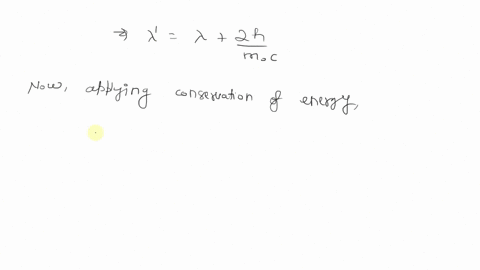 → λ' = λ + 2h/m₀c
Now, applying conservation of energy,